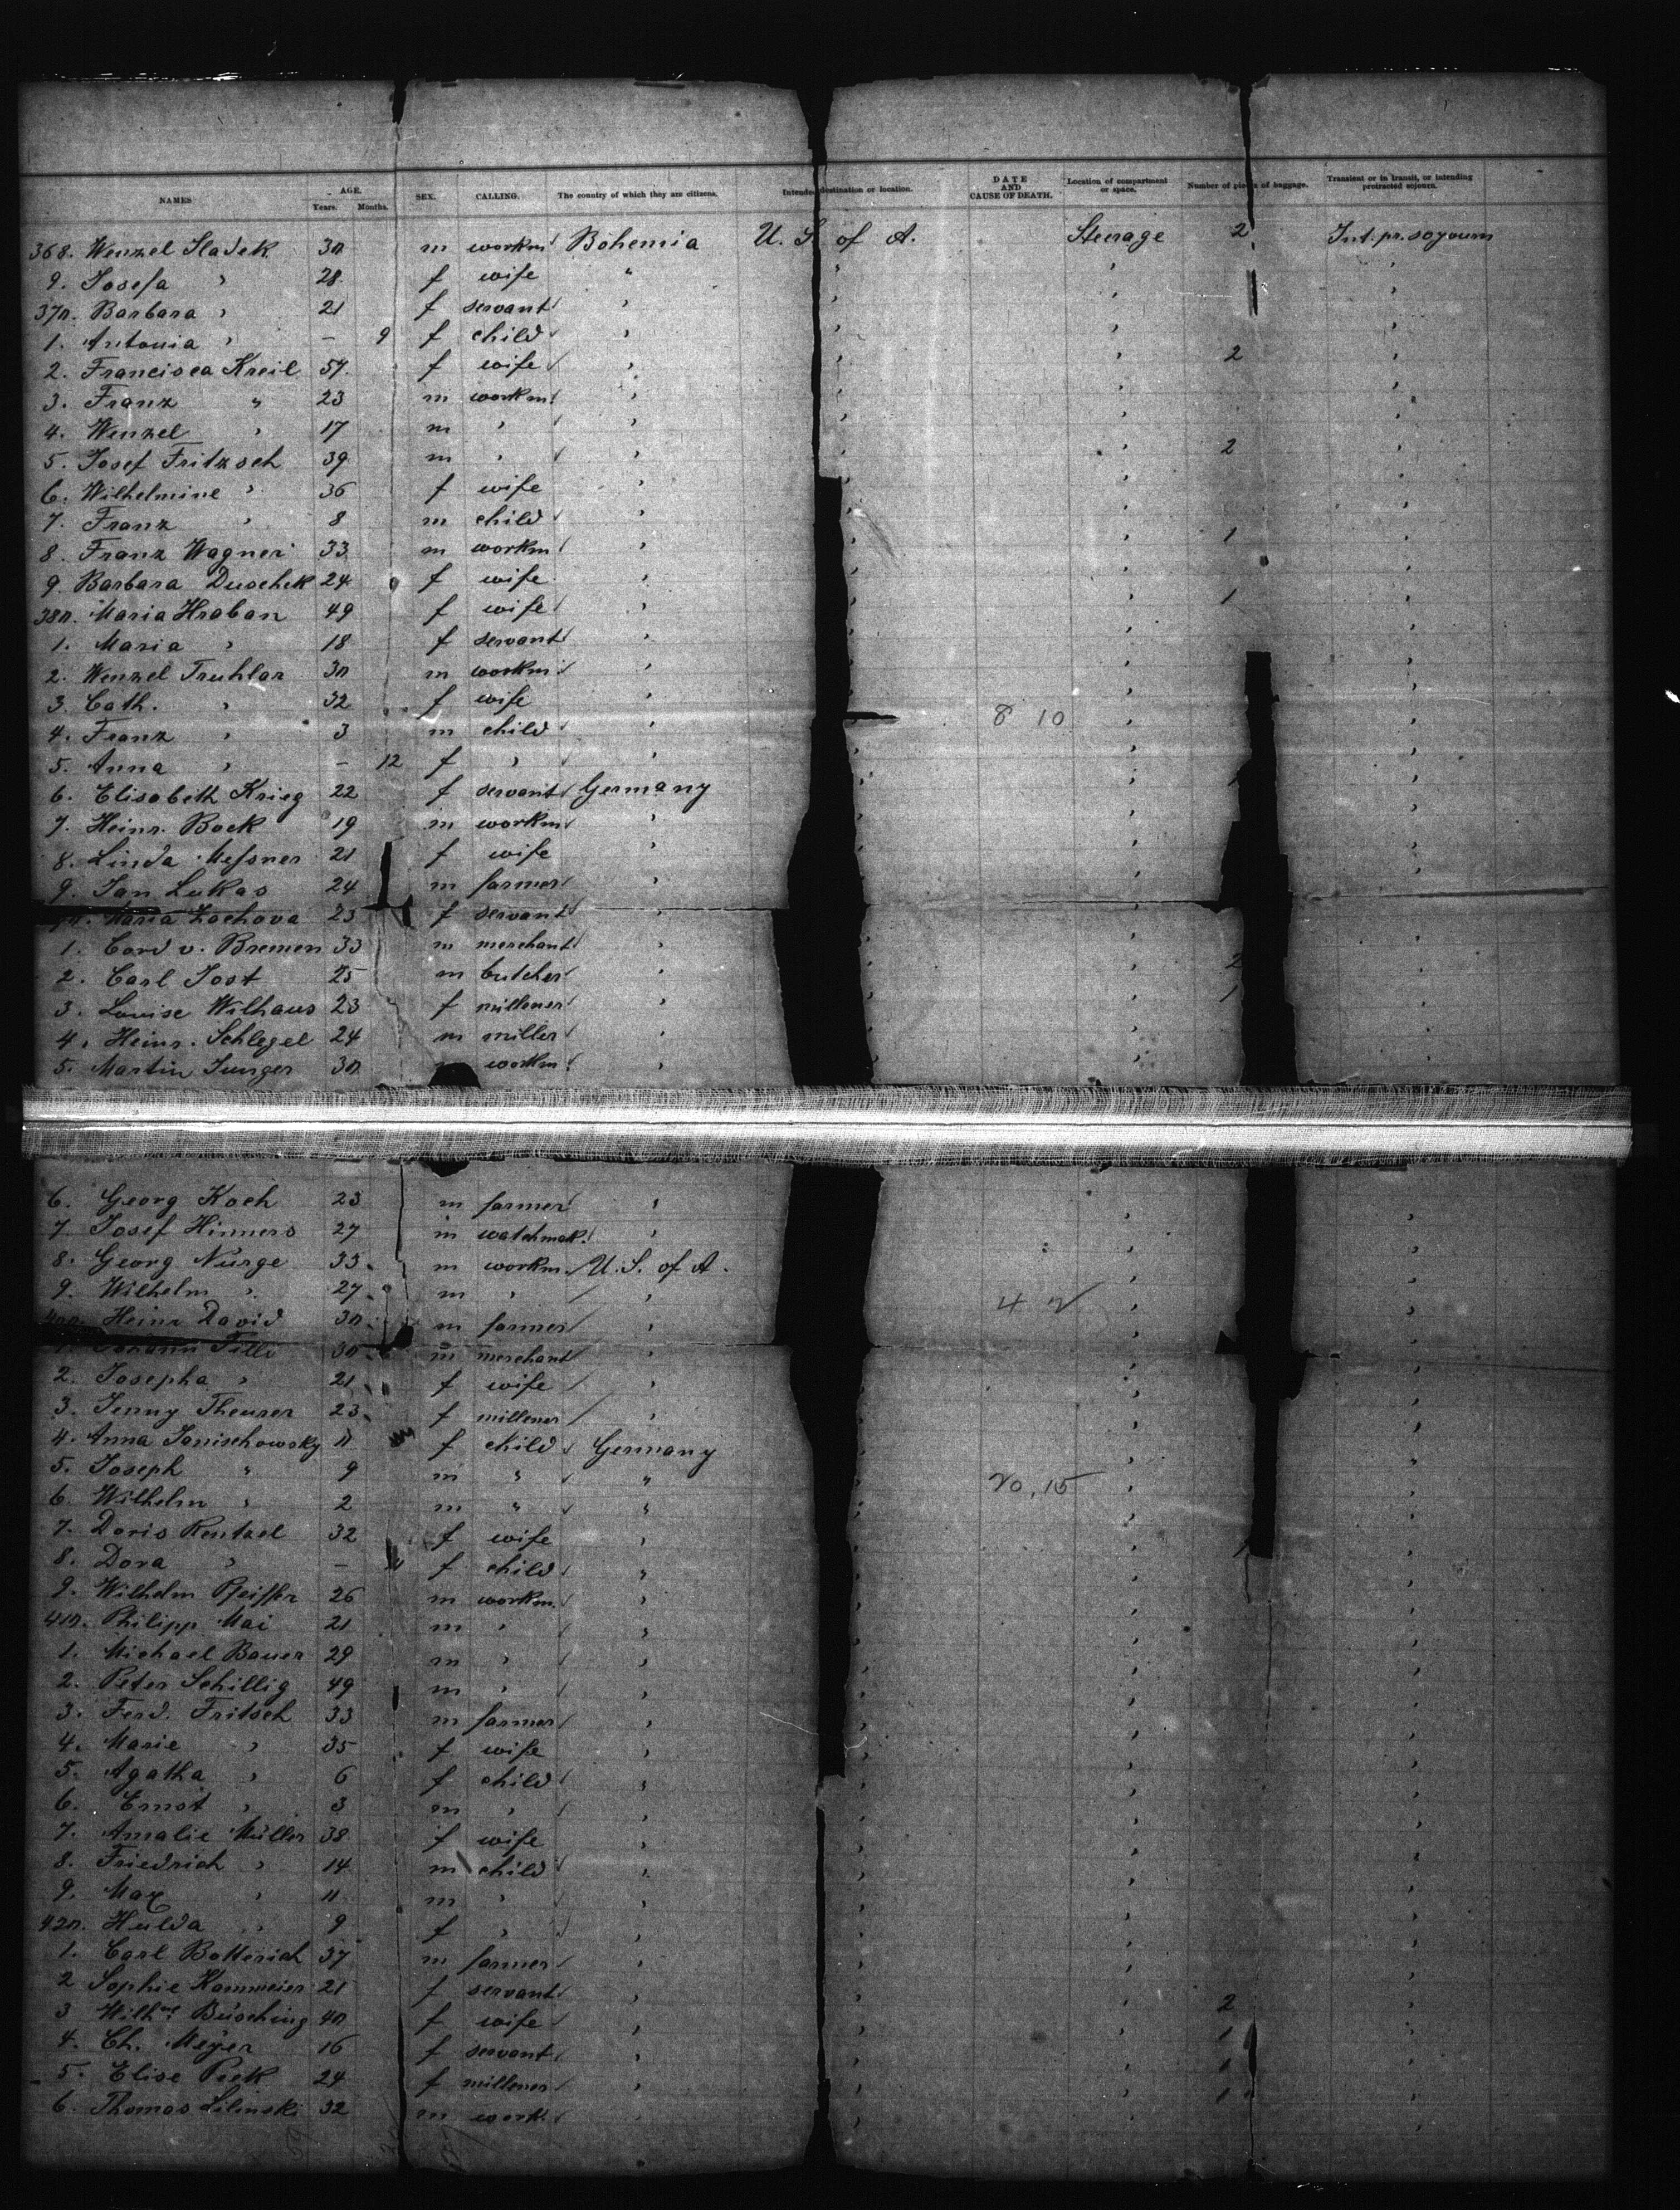 NAMES AGE. Years. Months. SEX. CALLING. The country of which they are citizens. Intended destination or location. DATE AND CAUSE OF DEATH. Location of compartment or space. Number of pieces of baggage. Transient or in transit, or intending protracted sojourn.
368. Wenzel Sladek 30 m workm Bohemia U. S. of A. Steerage 2 Int. pr. sojourn
9. Josefa " 28 f wife " " " "
370. Barbara " 21 f servant " " " "
1. Antonia " – 9 f child " " " "
2. Francisca Kreil 57 f wife " " " 2 "
3. Franz " 23 m workm " " " "
4. Wenzel " 17 m " " " " "
5. Josef Fritzsch 39 m " " " " 2 "
6. Wilhelmine " 36 f wife " " " "
7. Franz " 8 m child " " " "
8. Franz Wagner 33 m workm " " " 1 "
9. Barbara Duschek 24 f wife " " " "
380. Maria Hraban 49 f wife " " " 1 "
1. Maria " 18 f servant " " " "
2. Wenzel Truhlar 30 m workm " " " "
3. Cath. " 32 f wife " " " "
4. Franz " 3 m child " " 8 10 " "
5. Anna " – 12 f " " " " "
6. Elisabeth Krieg 22 f servant Germany " " 1 "
7. Heinr. Bock 19 m workm " " " "
8. Linda Messner 21 f wife " " " "
9. Jan Lukas 24 m farmer " " " "
Maria Zachova 23 f servant " " " "
1. Cord v. Bremen 33 m merchant " " " "
2. Carl Jost 25 m butcher " " " 2 "
3. Louise Wilhaus 23 f millener " " " 1 "
4. Heinr. Schlegel 24 m miller " " " "
5. Martin Junger 30 m workm " " " "
6. Georg Koch 23 m farmer " " "
7. Josef Hinners 27 m watchmak. " " "
8. Georg Nürge 33 m workm. U. S. of A. " "
9. Wilhelm " 27 m " " 4 2 " "
400. Heinr David 30 m farmer " " "
1. Johann Tilli 30 m merchant " " "
2. Josepha " 21 f wife " " "
3. Jenny Theurer 23 f millener " " "
4. Anna Janischowsky 11 f child Germany " "
5. Joseph " 9 m " " 20, 15 " "
6. Wilhelm " 2 m " " " "
7. Doris Rentzel 32 f wife " " 1 "
8. Dora " – f child " " "
9. Wilhelm Pfeiffer 26 m workm. " " "
410. Philipp Mai 21 m " " " "
1. Michael Bauer 29 m " " " "
2. Peter Schillig 49 m " " " " "
3. Ferd. Fritsch 33 m farmer " " " "
4. Marie " 35 f wife " " " "
5. Agatha " 6 f child " " " "
6. Ernst " 3 m " " " " "
7. Amalie Müller 38 f wife " " " "
8. Friedrich " 14 m child " " " "
9. Max " 11 m " " " " "
420. Hulda " 9 f " " " " "
1. Carl Botterich 37 m farmer " " " "
2 Sophie Kammeier 21 f servant " " " "
3 Wilhne Büsching 40 f wife " " " 2 "
4. Ch. Meyer 16 f servant " " " 1 "
5. Elise Peek 24 f millener " " " 1 "
6. Thomas Lilinski 32 m work. " " " 1 "